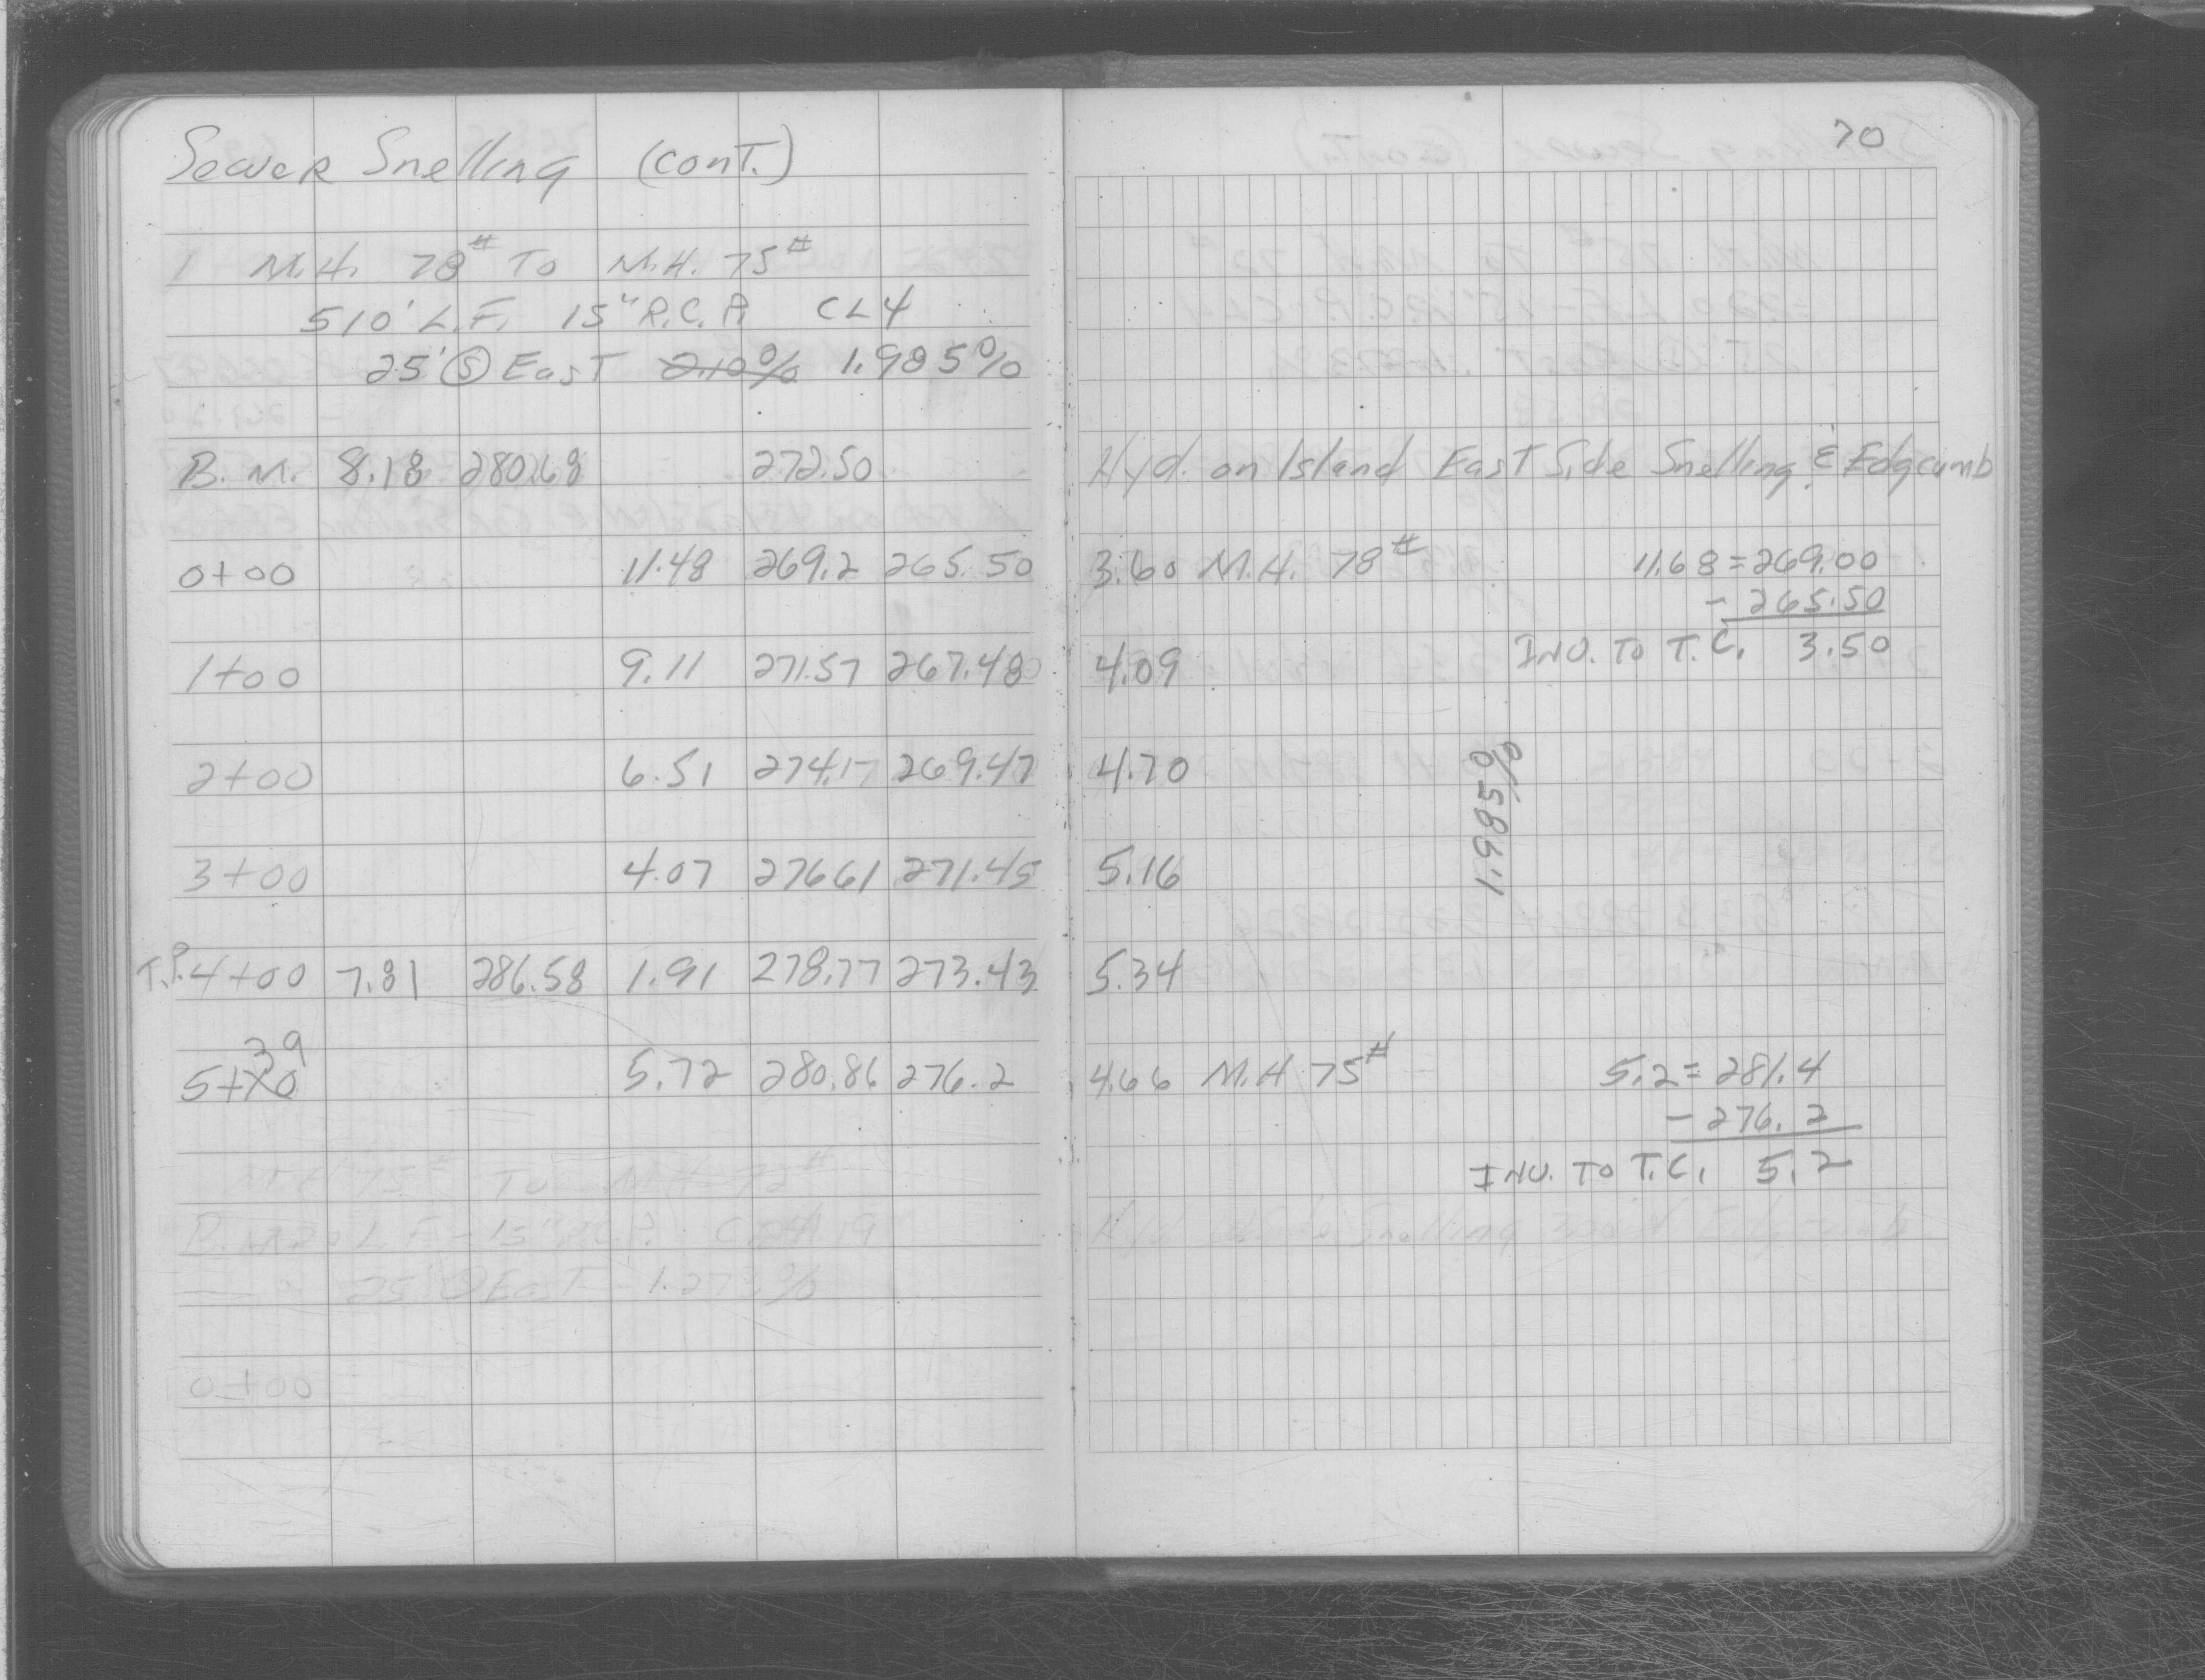 Sewer Snelling (cont.)
1 M.H. 78# To M.H. 75#
510' L.F. 15" R.C.P. CL4
25' Ⓢ East 2.10% 1.985%
B.M. 8.18 280.68 272.50
0+00 11.48 269.2 265.50
1+00 9.11 271.57 267.480
2+00 6.51 274.17 269.47
3+00 4.07 27661 271.45
T.P. 4+00 7.81 286.58 1.91 278.77 273.43
39
5+X0 5.72 280.86 276.2
M.H. 75# To M.H. 72#
25' Ⓢ East 1.273%
0+00
70
Hyd. on Island East Side Snelling & Edgcumb
3.60 M.H. 78# 11.68=269.00
- 265.50
INV. TO T.C. 3.50
4.09
4.70
1.985%
5.16
5.34
4.66 M.H 75# 5.2=281.4
- 276.2
INV. TO T.C. 5.2